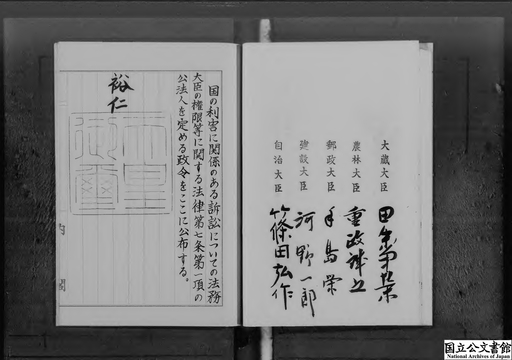 大蔵大臣 田中角栄
農林大臣 重政誠之
郵政大臣 手島栄
建設大臣 河野一郎
自治大臣 篠田弘作
国の利害に関係のある訴訟についての法務
大臣の権限等に関する法律第七条第一項の
公法人を定める政令をここに公布する。
裕仁
天皇御璽
内閣
国立公文書館
National Archives of Japan